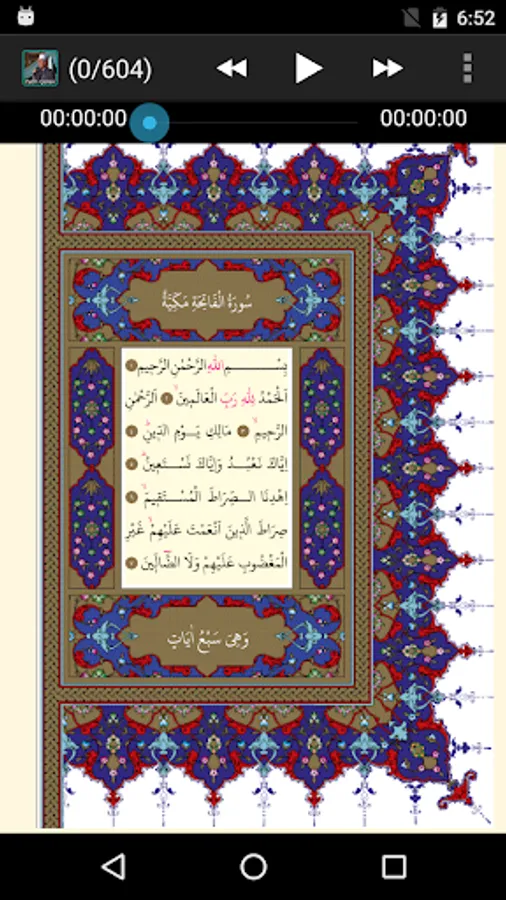 6:52
(0/604)
00:00:00 00:00:00
سُورَةُ الْفَاتِحَةِ مَكِّيَّةٌ
بِسْــــــــمِ اللهِ الرَّحْمٰنِ الرَّحِيمِ
اَلْحَمْدُ لِلّٰهِ رَبِّ الْعَالَمِينَۙ اَلرَّحْمٰنِ
الرَّحِيمِۙ مَالِكِ يَوْمِ الدِّينِۜ
اِيَّاكَ نَعْبُدُ وَاِيَّاكَ نَسْتَعِينُۜ
اِهْدِنَا الصِّرَاطَ الْمُسْتَقِيمَۙ
صِرَاطَ الَّذِينَ اَنْعَمْتَ عَلَيْهِمْۙ غَيْرِ
الْمَغْضُوبِ عَلَيْهِمْ وَلَا الضَّٓالِّينَ
وَهِىَ سَبْعُ اٰيَاتٍ